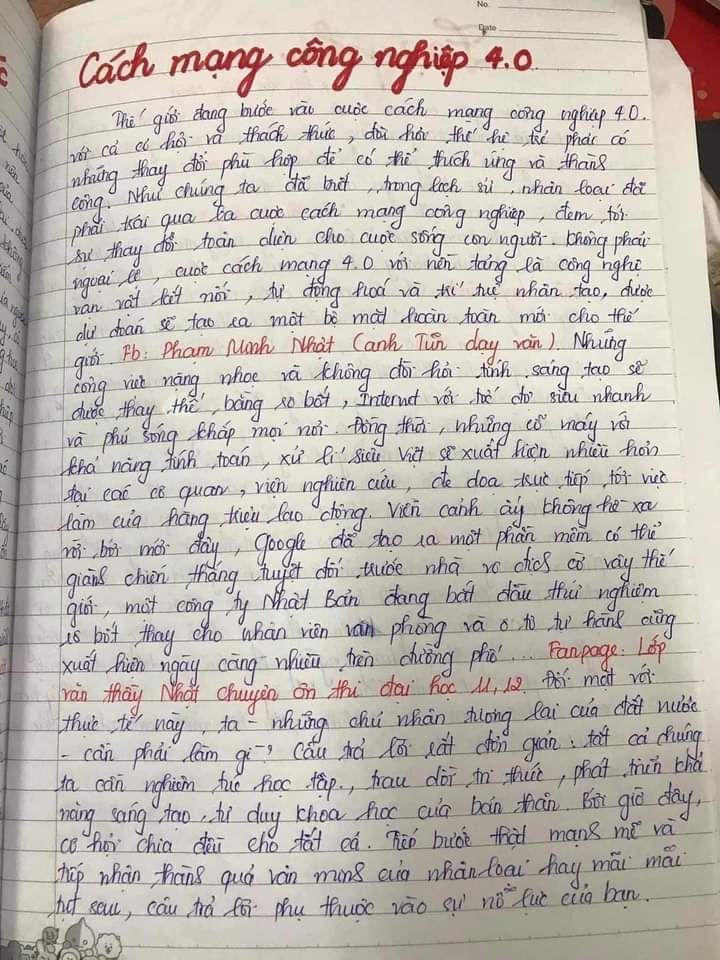 No.
Date
Cách mạng công nghiệp 4.0
Thế giới đang bước vào cuộc cách mạng công nghiệp 4.0.
với cả cơ hội và thách thức, đòi hỏi thế hệ trẻ phải có
những thay đổi phù hợp để có thể thích ứng và thành
công. Như chúng ta đã biết, trong lịch sử, nhân loại đã
phải trải qua ba cuộc cách mạng công nghiệp, đem tới
sự thay đổi toàn diện cho cuộc sống con người. Không phải
ngoại lệ, cuộc cách mạng 4.0 với nền tảng là công nghệ
vạn vật kết nối, tự động hoá và trí tuệ nhân tạo, được
dự đoán sẽ tạo ra một bộ mặt hoàn toàn mới cho thế
giới Fb: Phạm Minh Nhật (anh Tũn dạy văn). Những
công việc nặng nhọc và không đòi hỏi tính sáng tạo sẽ
được thay thế bằng rô bốt, Internet với tốc độ siêu nhanh
và phủ sóng khắp mọi nơi. Đồng thời, những cỗ máy với
khả năng tính toán, xử lí siêu việt sẽ xuất hiện nhiều hơn
tại các cơ quan, viện nghiên cứu, đe doạ trực tiếp tới việc
làm của hàng triệu lao động. Viễn cảnh ấy không hề xa
vời bởi mới đây, Google đã tạo ra một phần mềm có thể
giành chiến thắng tuyệt đối trước nhà vô địch cờ vây thế
giới, một công ty Nhật Bản đang bắt đầu thử nghiệm
rô bốt thay cho nhân viên văn phòng và ô tô tự hành cũng
xuất hiện ngày càng nhiều trên đường phố... Fanpage: Lớp
văn thầy Nhật chuyên ôn thi đại học 11, 12. Đối mặt với
thực tế này, ta - những chủ nhân tương lai của đất nước
- cần phải làm gì? Câu trả lời rất đơn giản: tất cả chúng
ta cần nghiêm túc học tập, trau dồi tri thức, phát triển khả
năng sáng tạo, tư duy khoa học của bản thân. Bởi giờ đây,
cơ hội chia đều cho tất cả. Tiếp bước thật mạnh mẽ và
tiếp nhận thành quả văn minh của nhân loại hay mãi mãi
tụt sau, câu trả lời phụ thuộc vào sự nỗ lực của bạn.